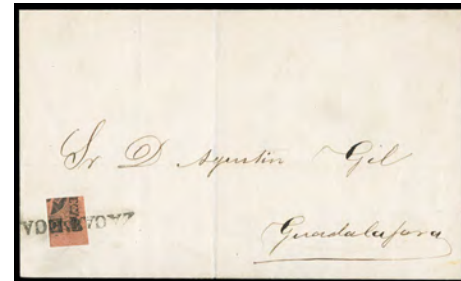 Sr D Agustin Gil
Guadalajara